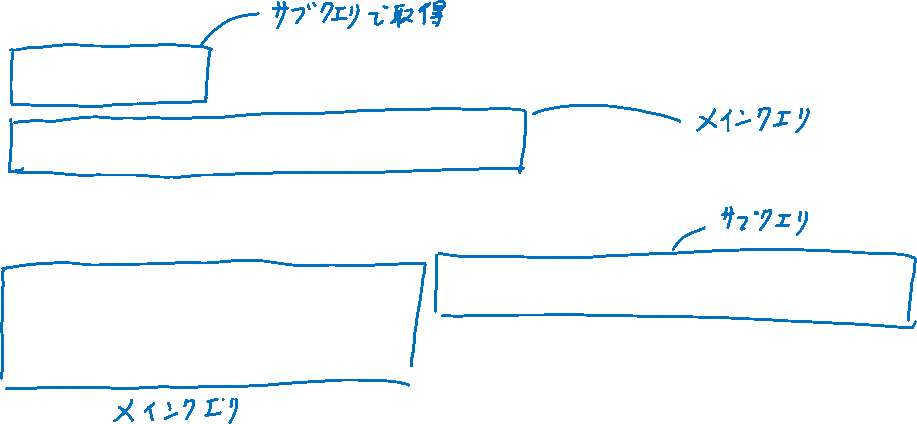 サブクエリで取得
メインクエリ
サブクエリ
メインクエリ